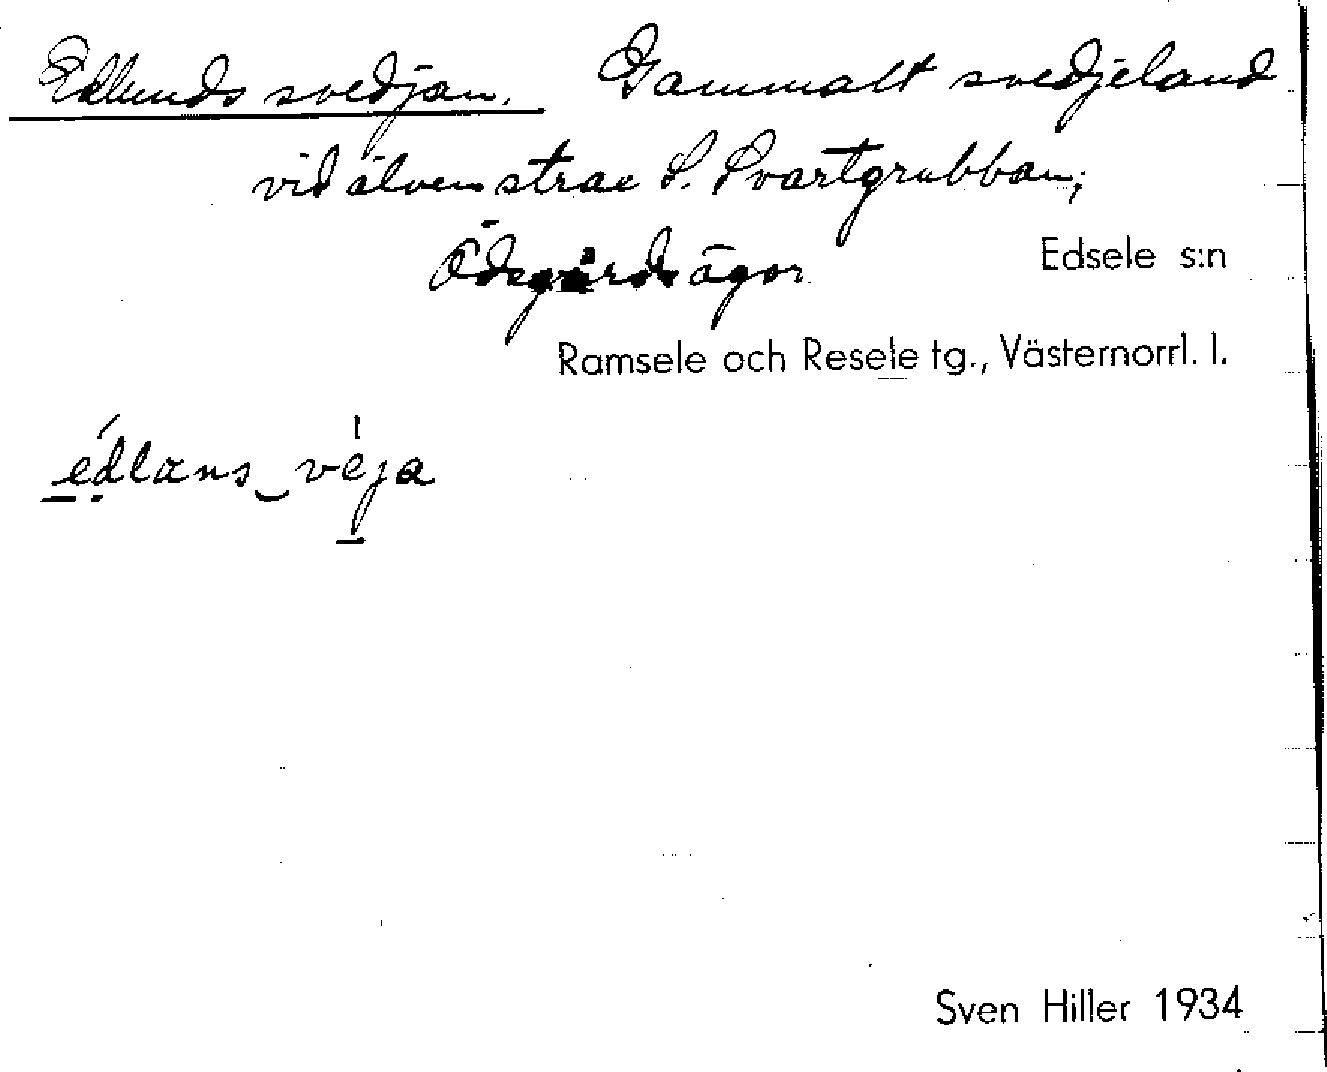 Edlunds svedjan. Gammalt svedjeland
vid älven strax S. Svartgrubban;
Ödsgårds ägor
Edsele s:n
Ramsele och Resele tg., Västernorrl. l.
édlans vé̍ja
Sven Hiller 1934